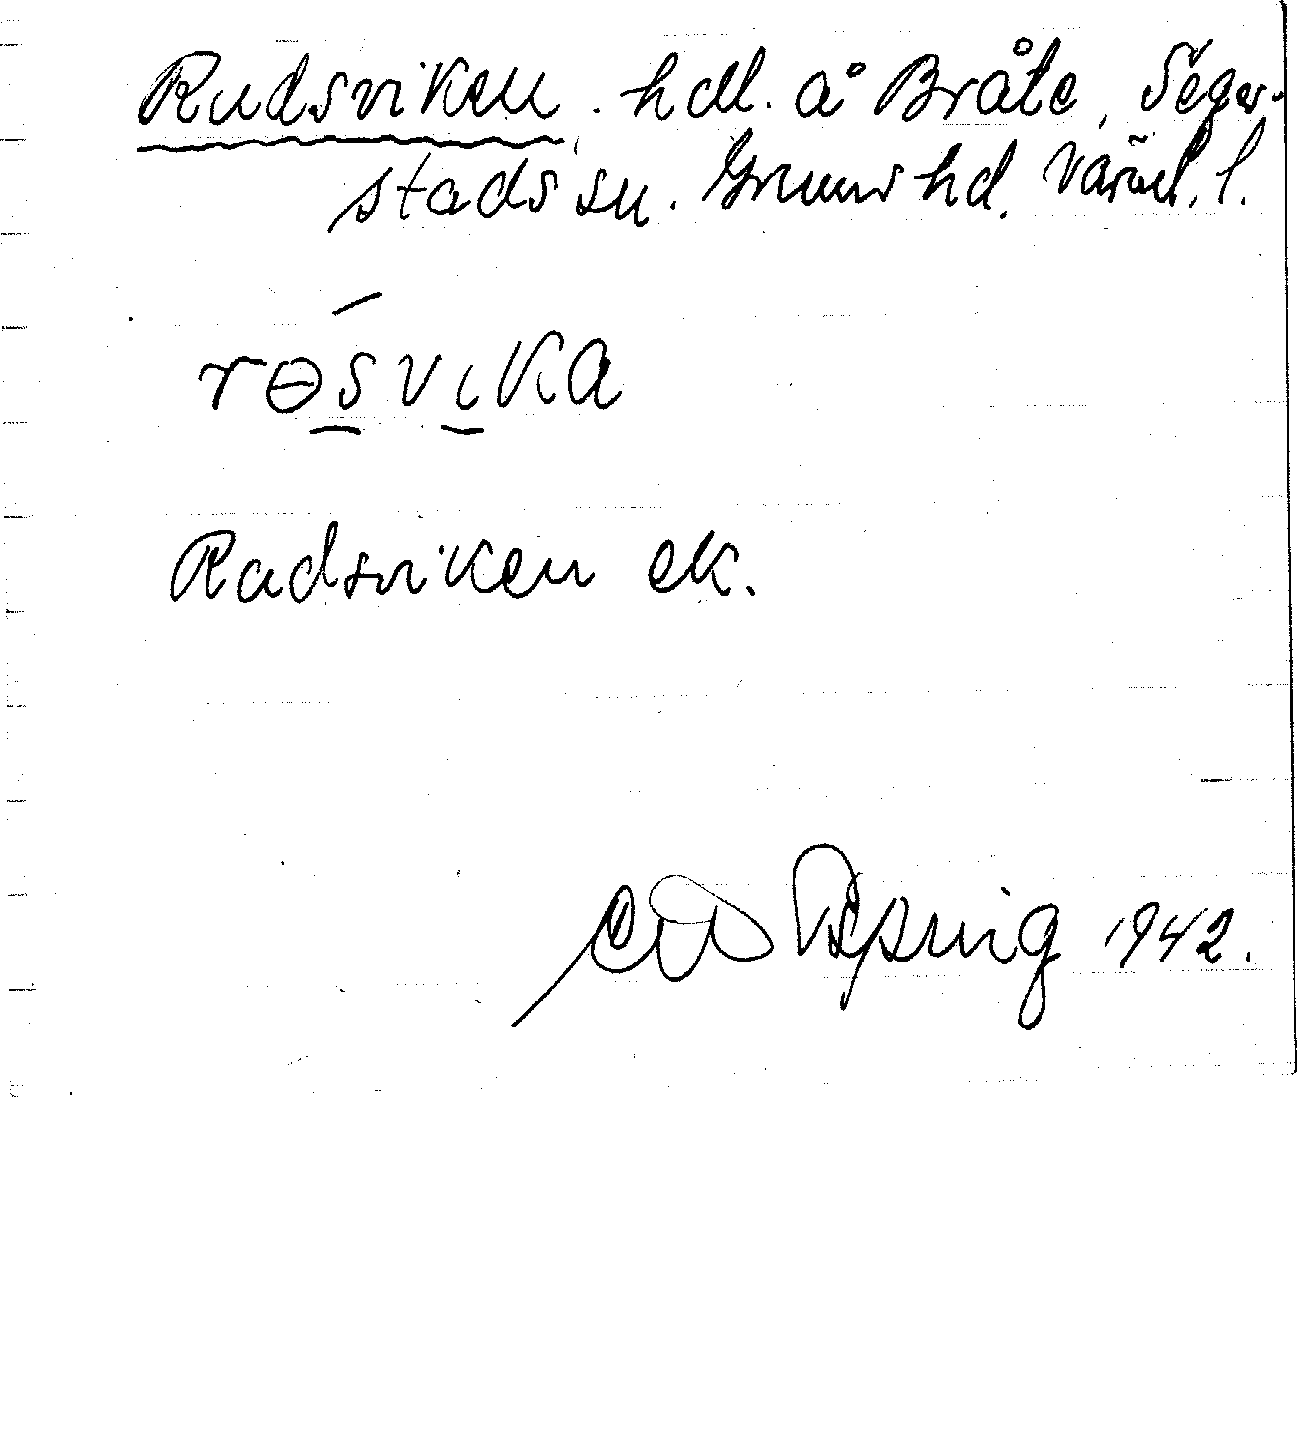 Rudsviken. hdl. å Bråte, Seger-
stads sn. Grums hd. Värml. l.
rɵsvika
Radsviken ek.
1942.